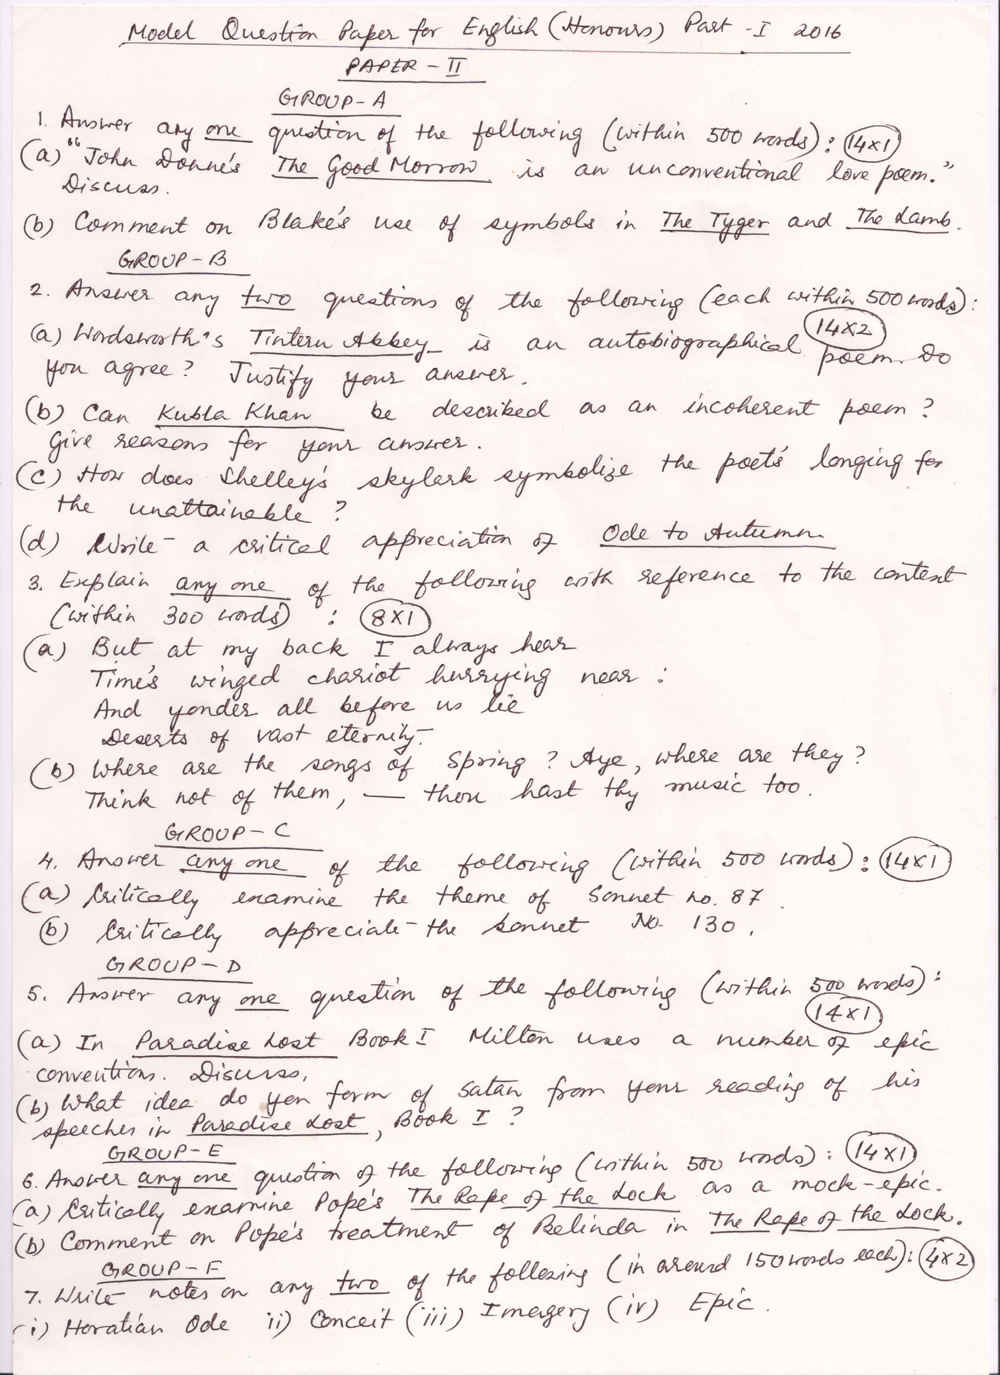 Model Question Paper for English (Honours) Part - I 2016
PAPER - II
GROUP - A
1. Answer any one question of the following (within 500 words) : 14x1
(a) "John Donne's The Good Morrow is an unconventional love poem."
Discuss.
(b) Comment on Blake's use of symbols in The Tyger and The Lamb.
GROUP - B
2. Answer any two questions of the following (each within 500 words) :
14x2
(a) Wordsworth's Tintern Abbey is an autobiographical poem. Do
you agree? Justify your answer.
(b) Can Kubla Khan be described as an incoherent poem?
Give reasons for your answer.
(c) How does Shelley's skylark symbolize the poet's longing for
the unattainable?
(d) Write a critical appreciation of Ode to Autumn.
3. Explain any one of the following with reference to the context
(within 300 words) : 8x1
(a) But at my back I always hear
Time's winged chariot hurrying near :
And yonder all before us lie
Deserts of vast eternity.
(b) Where are the songs of Spring? Aye, where are they?
Think not of them, — thou hast thy music too.
GROUP - C
4. Answer any one of the following (within 500 words) : 14x1
(a) Critically examine the theme of Sonnet no. 87.
(b) Critically appreciate the sonnet No. 130.
GROUP - D
5. Answer any one question of the following (within 500 words) :
14x1
(a) In Paradise Lost Book I Milton uses a number of epic
conventions. Discuss.
(b) What idea do you form of Satan from your reading of his
speeches in Paradise Lost, Book I?
GROUP - E
6. Answer any one question of the following (within 500 words) : 14x1
(a) Critically examine Pope's The Rape of the Lock as a mock-epic.
(b) Comment on Pope's treatment of Belinda in The Rape of the Lock.
GROUP - F
7. Write notes on any two of the following (in around 150 words each) : 4x2
(i) Horatian Ode ii) Conceit (iii) Imagery (iv) Epic.